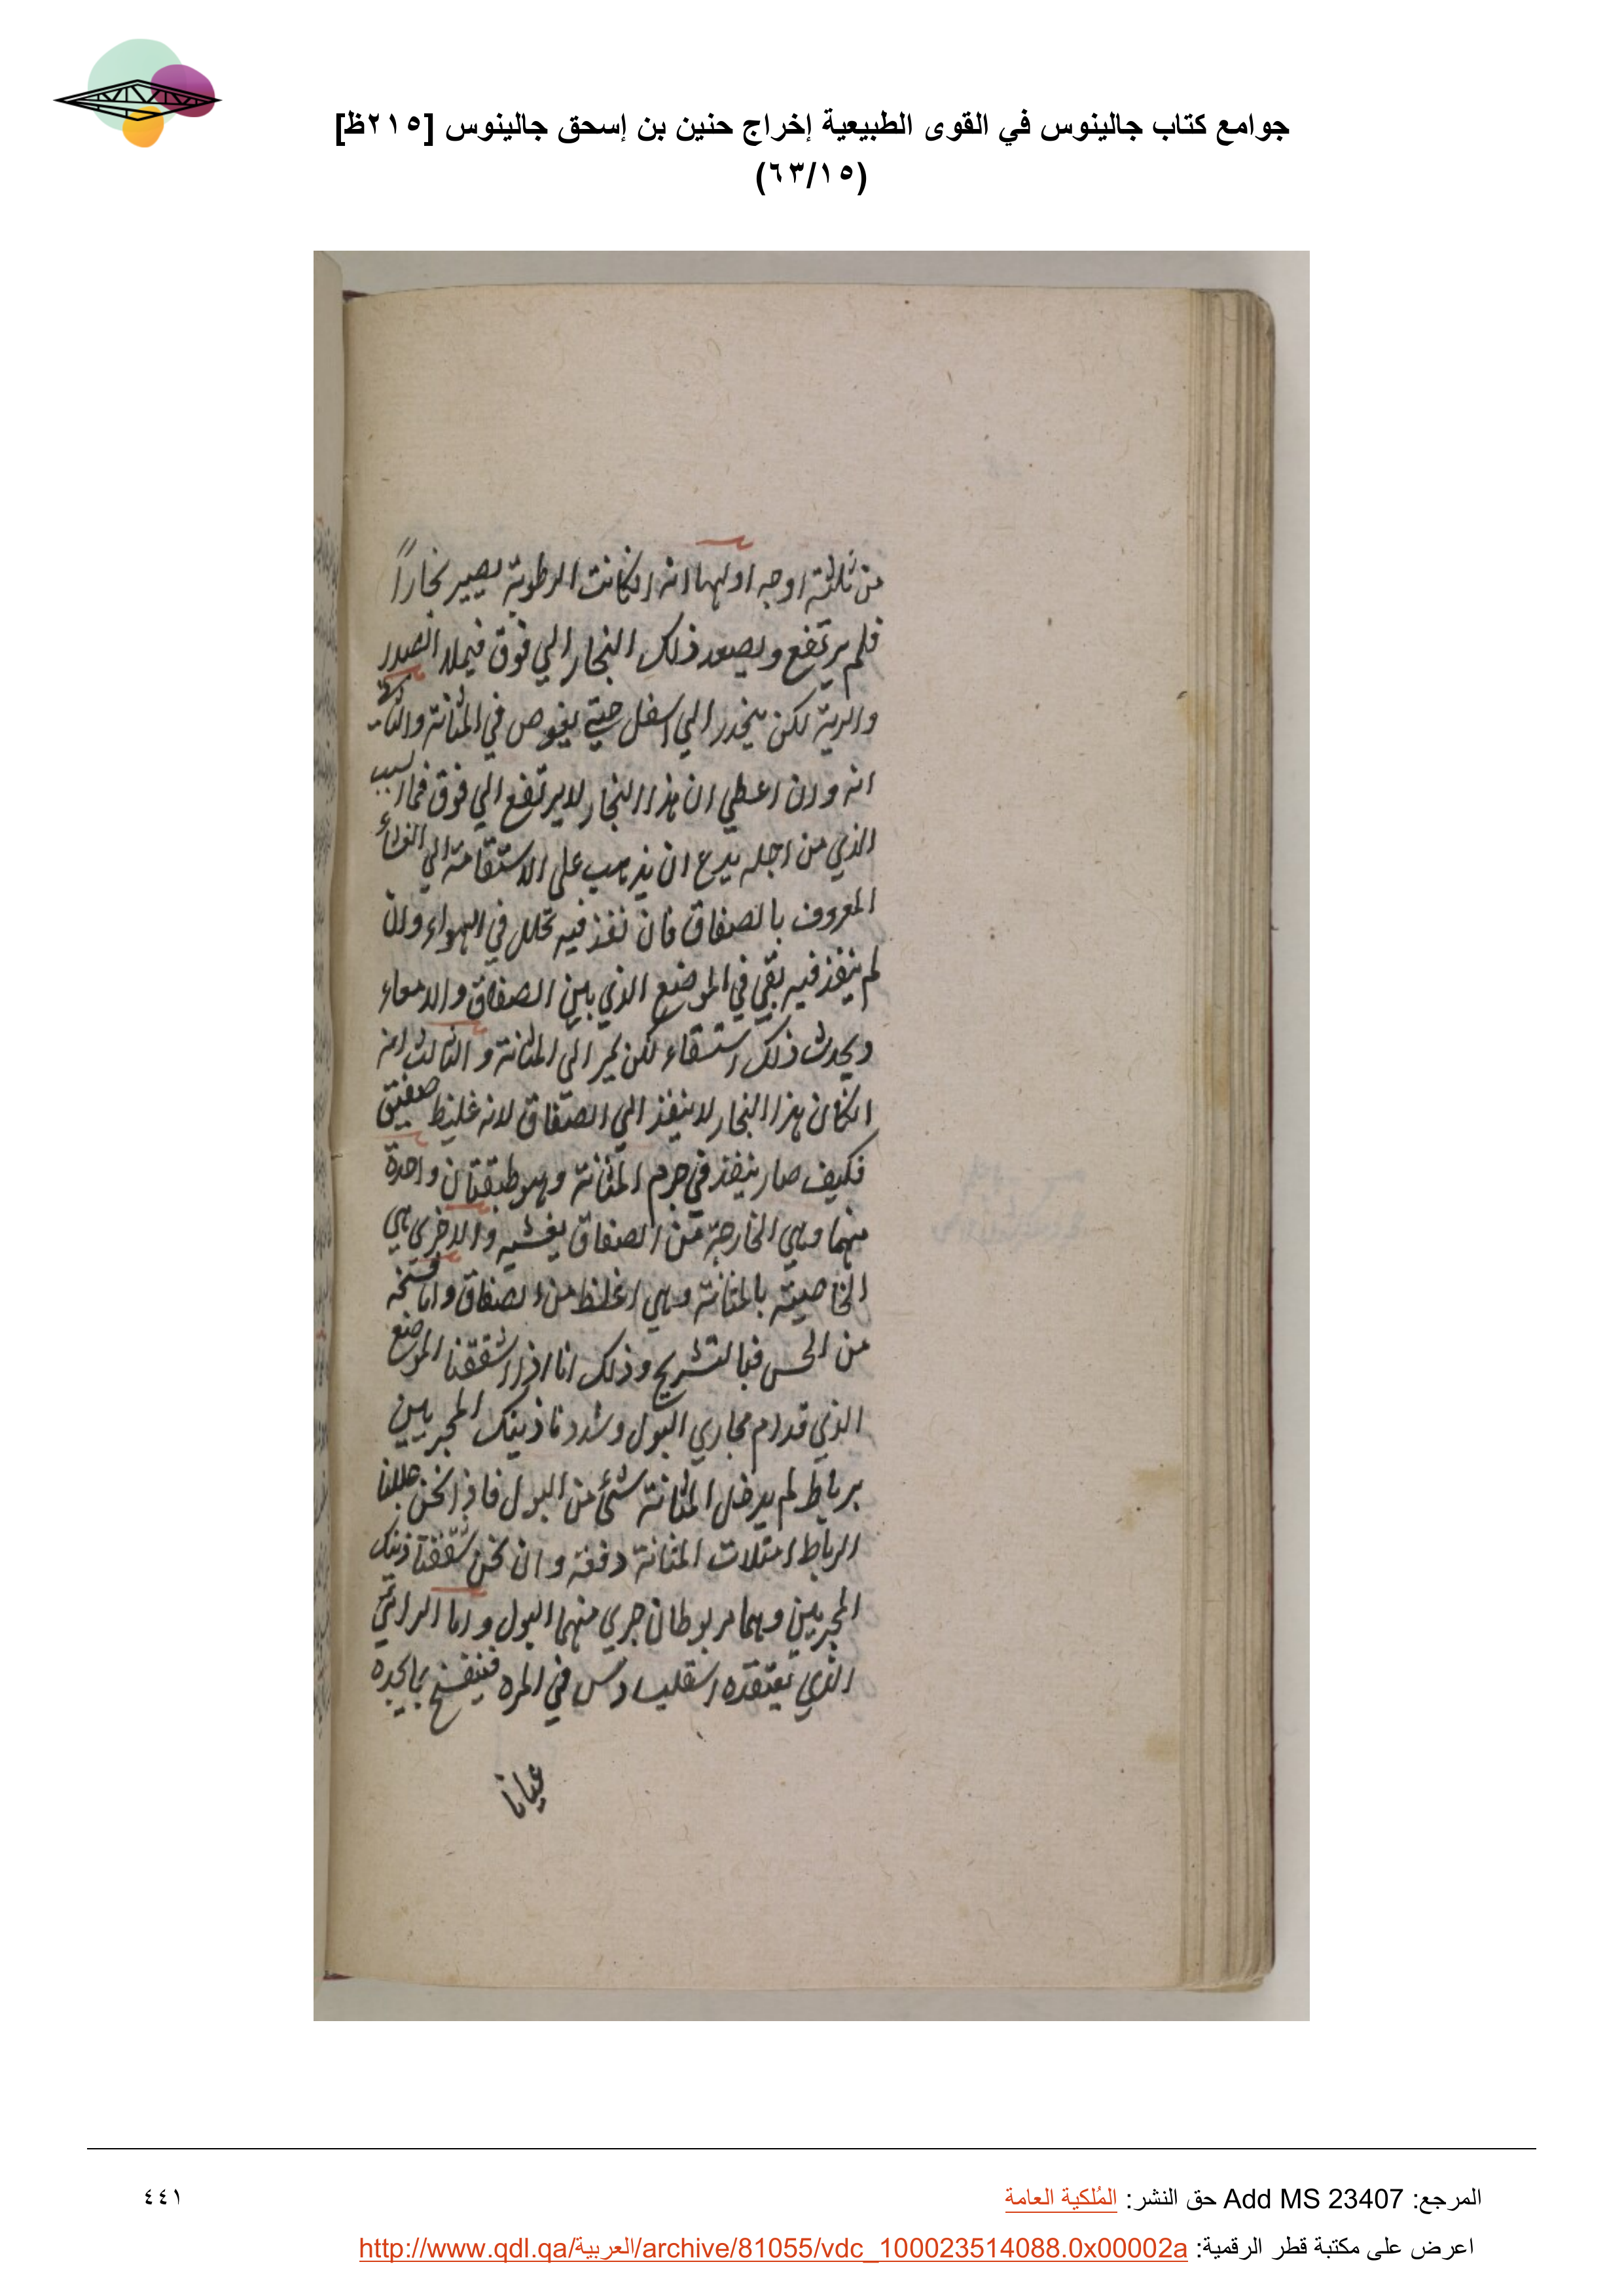 جوامع كتاب جالينوس في القوى الطبيعية إخراج حنين بن إسحق جالينوس [٢١٥ظ]
(٦٣/١٥)
من ثلثة اوجه اولها انه انكانت الرطوبة يصير بخاراً
فلم يرتفع ويصعد ذلك البخار الي فوق فيملا الصدر
والرية لكن ينحدر الي اسفل حتي يغوص في المثانة والثاني
انه وان اعطي ان هذا البخار لا يرتفع الي فوق فما السبب
الذي من اجله يدع ان يذهب على الاستقامة الي الغشاء
المعروف بالصفاق فان نفذ فيه تحلل في الهواء وان
لم ينفذ فيه بقي في الموضع الذي بين الصفاق والامعاء
ويحدث ذلك استسقاء لكن يمر الى المثانة والثالث انه
انكان هذا البخار لا ينفذ الي الصفاق لانه غليظ صفيق
فكيف صار ينفذ في جرم المثانة وهو طبقتان واحدة
منهما وهي الخارجة من الصفاق يغشيه والاخرى هي
الخاصية بالمثانة وهي اغلظ من الصفاق واما
من الحس فبالتشريح وذلك انا اذا شققنا الموضع
الذي قدام مجاري البول وشددنا ذينك المجريين
برباط لم يدخل المثانة شئ من البول فاذا نحن حللنا
الرباط امتلات المثانة دفعة وان نحن شققنا ذينك
المجريين وهما مربوطان جري منهما البول واما الرائي
الذي تعتقده اسقليبادس في المره فينفسخ بما يجده
عيانا
المرجع: Add MS 23407 حق النشر: المُلكية العامة
٤٤١
اعرض على مكتبة قطر الرقمية: http://www.qdl.qa/العربية/archive/81055/vdc_100023514088.0x00002a